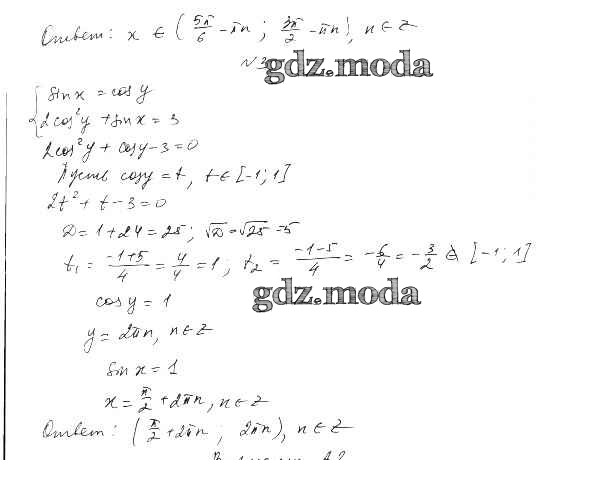 Ответ: x ∈ (5π/6 - πn ; 3π/2 - πn), n ∈ Z
N 3
gdz.moda
{ sin x = cos y
2cos²y + sin x = 3
2cos²y + cos y - 3 = 0
Пусть cos y = t, t ∈ [-1; 1]
2t² + t - 3 = 0
D = 1 + 24 = 25; √D = √25 = 5
t₁ = (-1+5)/4 = 4/4 = 1; t₂ = (-1-5)/4 = -6/4 = -3/2 ∉ [-1; 1]
gdz.moda
cos y = 1
y = 2πn, n ∈ Z
sin x = 1
x = π/2 + 2πn, n ∈ Z
Ответ: (π/2 + 2πn ; 2πn), n ∈ Z